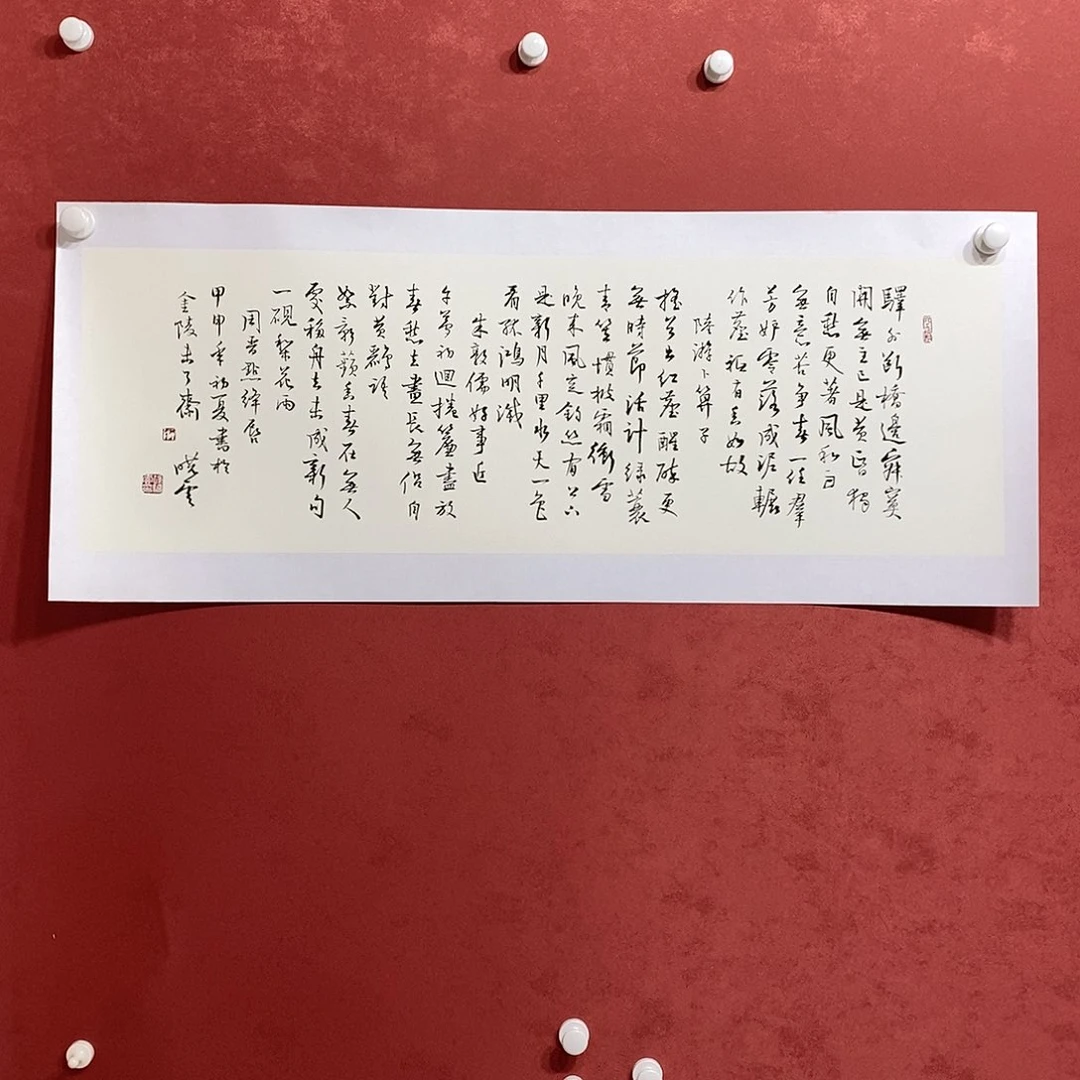 驛外斷橋邊寂寞
開無主已是黃昏獨
自愁更著風和雨
無意苦爭春一任羣
芳妒零落成泥輾
作塵祗有香如故
陸游卜算子
搖首出紅塵醒醉更
無時節活計綠蓑
青笠慣披霜衝雪
晚來風定釣絲閒上下
是新月千里水天一色
看孤鴻明滅
朱敦儒好事近
午夢初迴捲簾盡放
春愁去晝長無侶自
對黃鸝語
絮影蘋香春在無人
處移舟去未成新句
一硯梨花雨
周晉點絳唇
甲申年初夏書於
金陵未了齋 曉雲